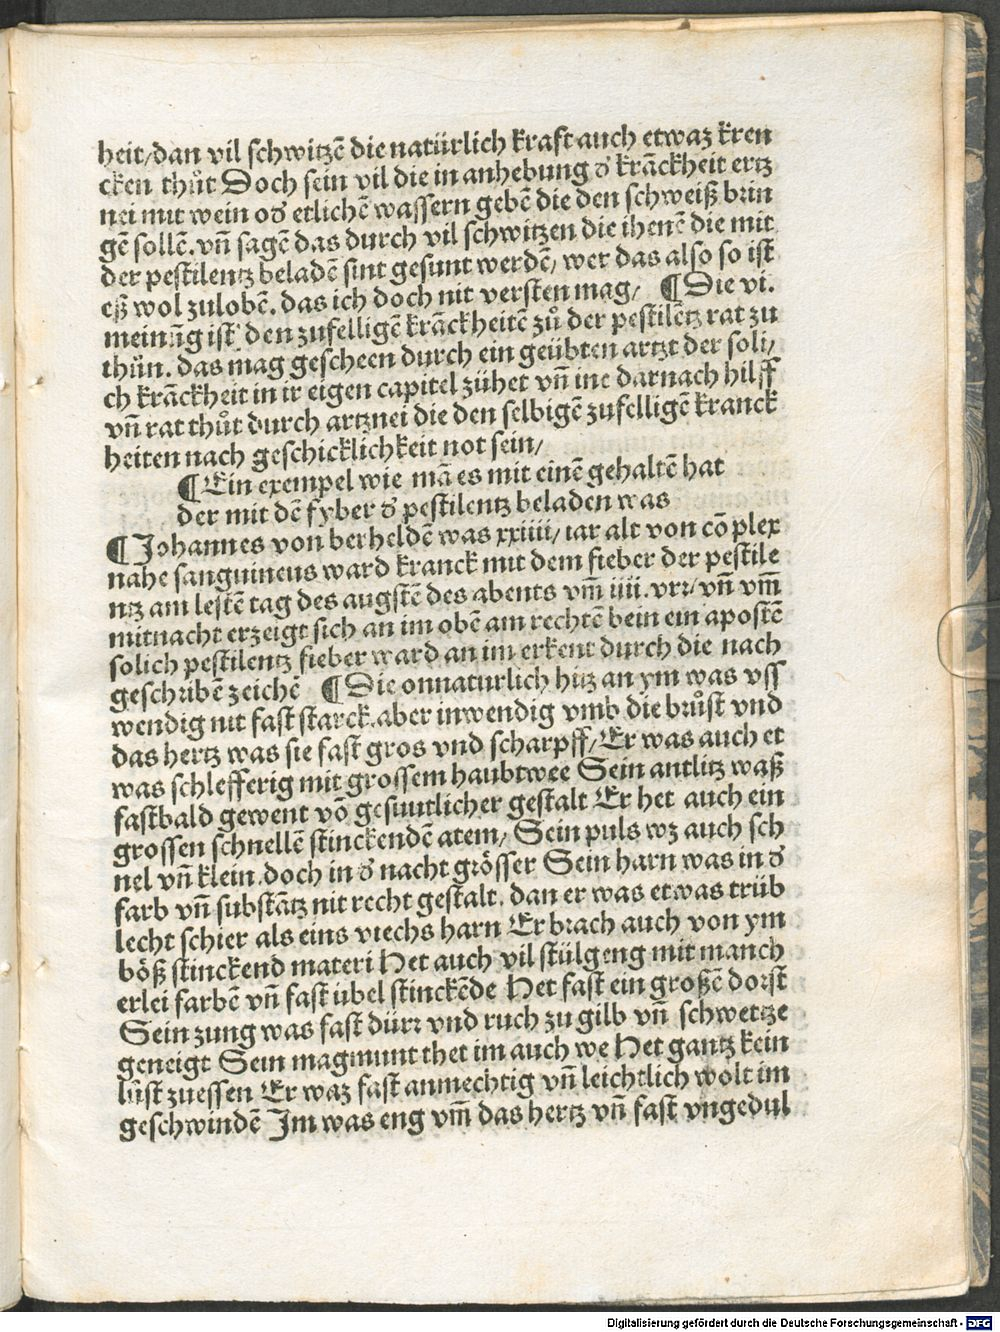 heit/dan vil schwitzē die natürlich kraft auch etwaz kren
cken thůt Doch sein vil die in anhebung ď krāckheit ertz
nei mit wein oď etlichē wassern gebē die den schweiß brin
gē sollē. vn̄ sagē das durch vil schwitzen die ihenē die mit
der pestilentz beladē sint gesunt werdē/ wer das also so ist
eß wol zulobē. das ich doch nit versten mag/ ¶ Die vi.
meinūg ist den zufelligē krāckheitē zů der pestilētz rat zu
thůn. das mag gescheen durch ein geübten artzt der soli/
ch krāckheit in ir eigen capitel zühet vn̄ ine darnach hilff
vn̄ rat thůt durch artznei die den selbigē zufelligē kranck
heiten nach geschicklichkeit not sein/
¶ Ein exempel wie mā es mit einē gehaltē hat
der mit dē fyber ď pestilentz beladen was
¶ Johannes von berheldē was xxiiii/ iar alt von cō plex
nahe sanguineus ward kranck mit dem fieber der pestile
ntz am lestē tag des augstē des abents vm̄ iiii. vrꝛ/ vn̄ vm̄
mitnacht erzeigt sich an im obē am rechtē bein ein apostē
solich pestilentz fieber ward an im erkent durch die nach
geschribē zeichē ¶ Die onnaturlich hitz an ym was vss
wendig nit fast starck. aber inwendig vmb die brůst vnd
das hertz was sie fast gros vnd scharpff/ Er was auch et
was schlefferig mit grossem haubtwee Sein antlitz waß
fastbald gewent vō gesuntlicher gestalt Er het auch ein
grossen schnellē stinckendē atem/ Sein puls wz auch sch
nel vn̄ klein. doch in ď nacht grösser Sein harn was in ď
farb vn̄ substātz nit recht gestalt. dan er was etwas trüb
lecht schier als eins viechs harn Er brach auch von ym
böß stinckend materi Het auch vil stülgeng mit manch
erlei farbē vn̄ fast übel stinckēde Het fast ein großē dorst
Sein zung was fast dürꝛ vnd ruch zu gilb vn̄ schwertze
geneigt Sein magmunt thet im auch we Het gantz kein
lüst zuessen Er waz fast anmechtig vn̄ leichtlich wolt im
geschwindē Jm was eng vm̄ das hertz vn̄ fast vngedul
Digitalisierung gefördert durch die Deutsche Forschungsgemeinschaft - DFG